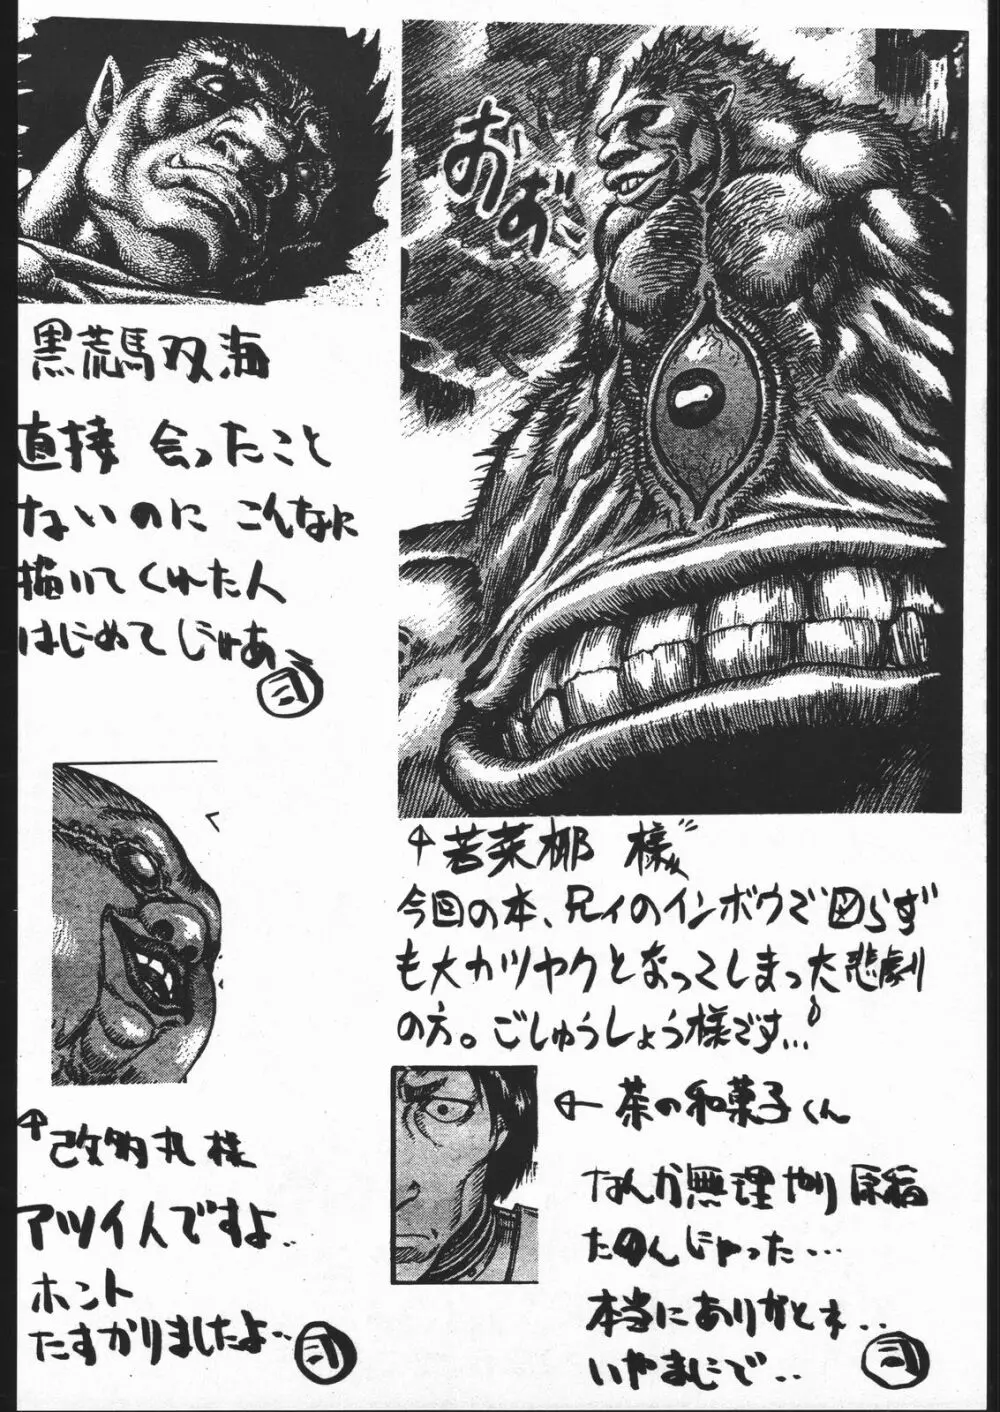 おぉおこ
黒荒馬双海
直接 会ったこと
ないのに こんなに
描いてくれた人
はじめてじゃあ、
弐
↑苦菜椰 様
今回の本、兄ィのインボウで図らず
も大カツヤクとなってしまった悲劇
の方。ごしゅうしょう様です…
←茶の和菓子くん
なんか無理やり原稿
たのんじゃった…
本当にありがとネ..
いやまじで..
弐
↑改多丸 様
アツイ人ですよ..
ホント
たすかりましたよ..
弐